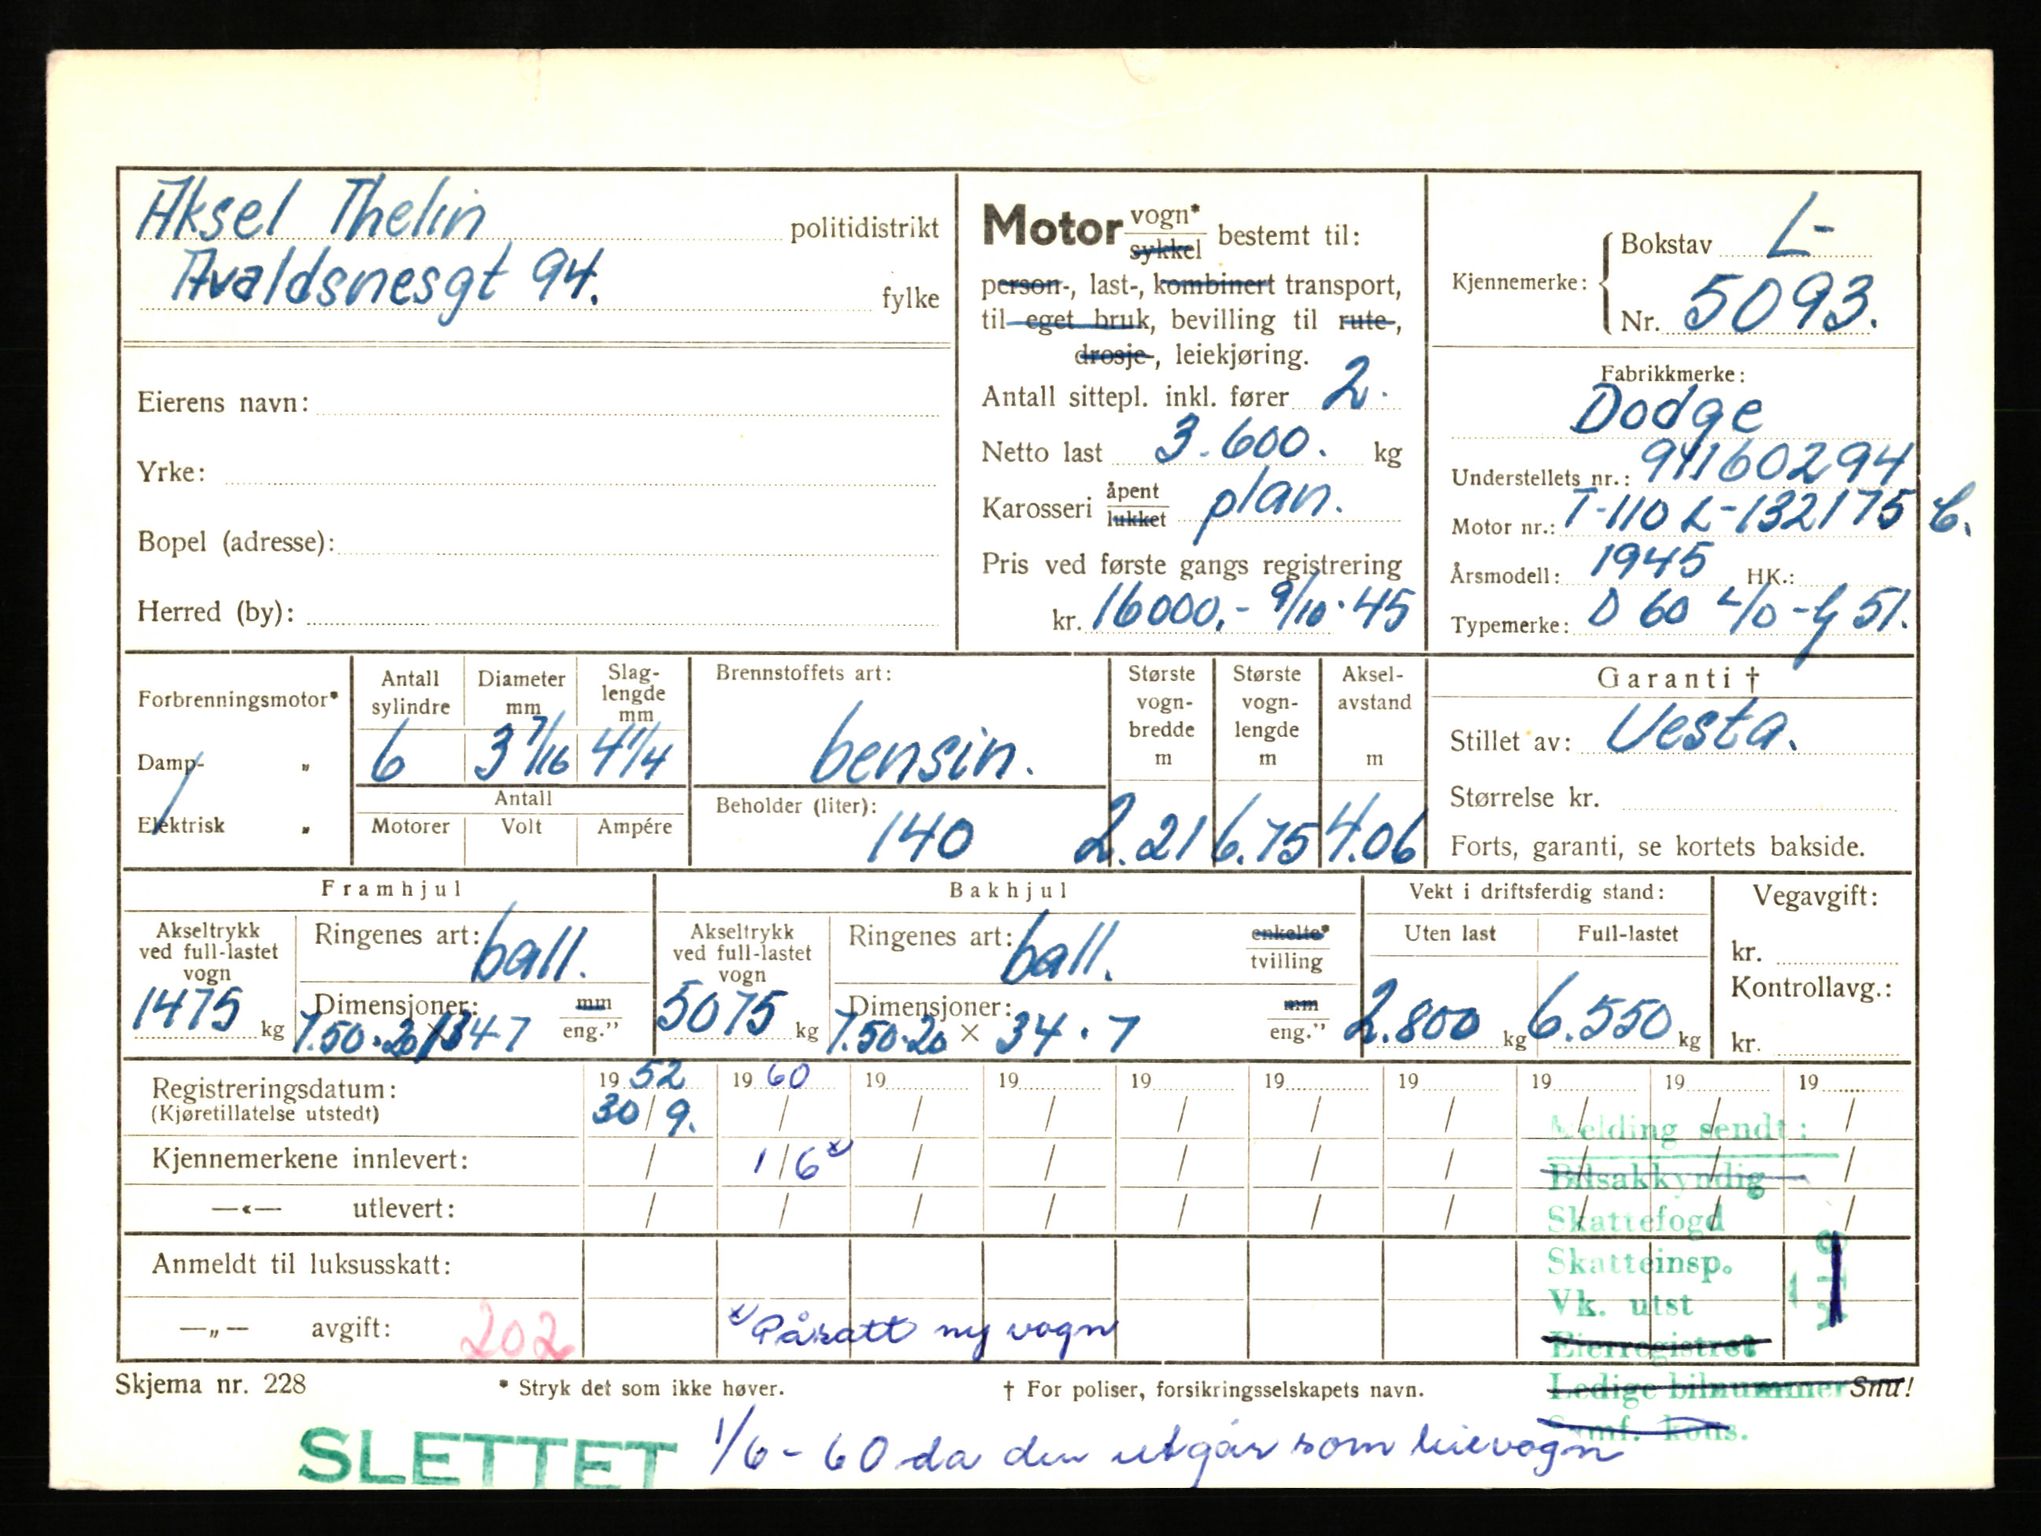 Aksel Thelin politidistrikt
Avaldsnesgt 94. fylke
Eierens navn:
Yrke:
Bopel (adresse):
Herred (by):
Motor vogn* sykkel bestemt til:
person-, last-, kombinert transport,
til eget bruk, bevilling til rute-,
drosje-, leiekjøring.
Antall sittepl. inkl. fører 2.
Netto last 3.600. kg
Karosseri åpent lukket plan.
Pris ved første gangs registrering
kr. 16000.- 9/10.45
Kjennemerke: Bokstav L-
Nr. 5093.
Fabrikkmerke:
Dodge
Understellets nr.: 94160294
Motor nr.: T-110 L-132175 C.
Årsmodell: 1945 HK.:
Typemerke: D 60 L/D-G 51.
Forbrenningsmotor*
Damp- „
Elektrisk „
Antall sylindre 6
Diameter mm 3 7/16
Slaglengde mm 4 1/4
Antall
Motorer Volt Ampére
Brennstoffets art:
bensin.
Beholder (liter):
140
Største vognbredde m 2.21
Største vognlengde m 6.75
Akselavstand m 4.06
Garanti †
Stillet av: Vesta.
Størrelse kr.
Forts, garanti, se kortets bakside.
Framhjul
Akseltrykk ved full-lastet vogn
1475 kg
Ringenes art: ball.
Dimensjoner: mm eng.”
7.50.20 × 34.7
Bakhjul
Akseltrykk ved full-lastet vogn
5075 kg
Ringenes art: ball. enkelte* tvilling
Dimensjoner: mm eng.”
7.50.20 × 34.7
Vekt i driftsferdig stand:
Uten last Full-lastet
2.800 kg 6.550 kg
Vegavgift:
kr.
Kontrollavg.:
kr.
Registreringsdatum: 1952 1960 19 19 19 19 19 19 19 19
(Kjøretillatelse utstedt) 30/9. / / / / / / / / /
Kjennemerkene innlevert: / 1/6 x) / / / / / / / /
—«— utlevert: / / / / / / / / / /
Anmeldt til luksusskatt:
—„— avgift: 202 x) Påsatt ny vogn
Melding sendt:
Bilsakkyndig
Skattefogd
Skatteinsp.
Vk. utst
Eierregistret
Ledige bilnummer
Samf. kons.
Skjema nr. 228 * Stryk det som ikke høver. † For poliser, forsikringsselskapets navn. Snu!
SLETTET 1/6-60 da den utgår som leievogn